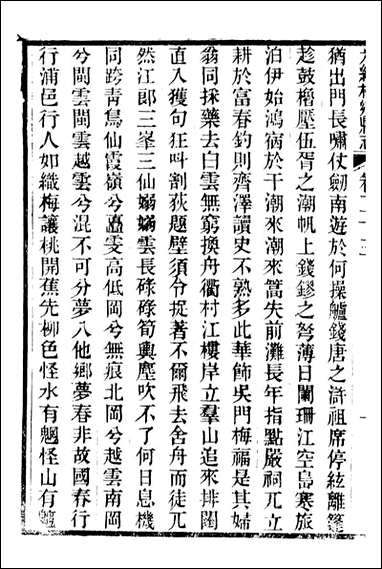 猶出門長嘯仗劒南遊於何操艫錢唐之滸祖席停絃離筵
趁鼓櫓壓伍胥之潮帆上錢鏐之弩薄日闌珊江空島寒旅
泊伊始鴻病於干潮來潮來篙失前灘長年指點嚴祠兀立
耕於富春釣則齊澤讀史不熟多此華飾吳門梅福是其婦
翁同採藥去白雲無窮換舟衢村江樓岸立羣山追來排闥
直入獲句狂呌割荻題壁須台捉著不爾飛去舍舟而徒兀
然江郎三峯三仙嫋嫋雲長碌碌筍輿塵吹不了何日息機
同跨青鳥仙霞嶺兮矗雯高低岡兮無痕北岡兮越雲南岡
兮閩雲閩雲越雲兮混不可分夢入他鄉夢春非故國春行
行浦邑行人如織梅讓桃開蕉先柳色怪水有魍怪山有